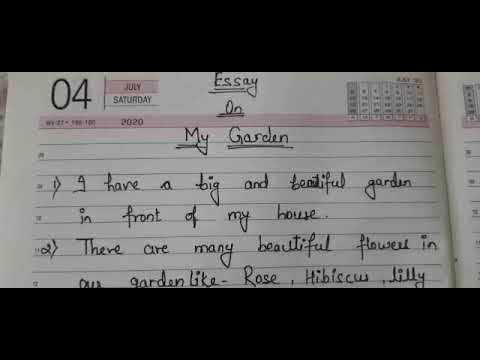 Essay
04
JULY
SATURDAY
On
JULY '20
Wk-27 • 186-180
2020
My Garden
1) I have a big and beautiful garden
in front of my house.
2) There are many beautiful flowers in
our garden like- Rose, Hibiscus, lilly